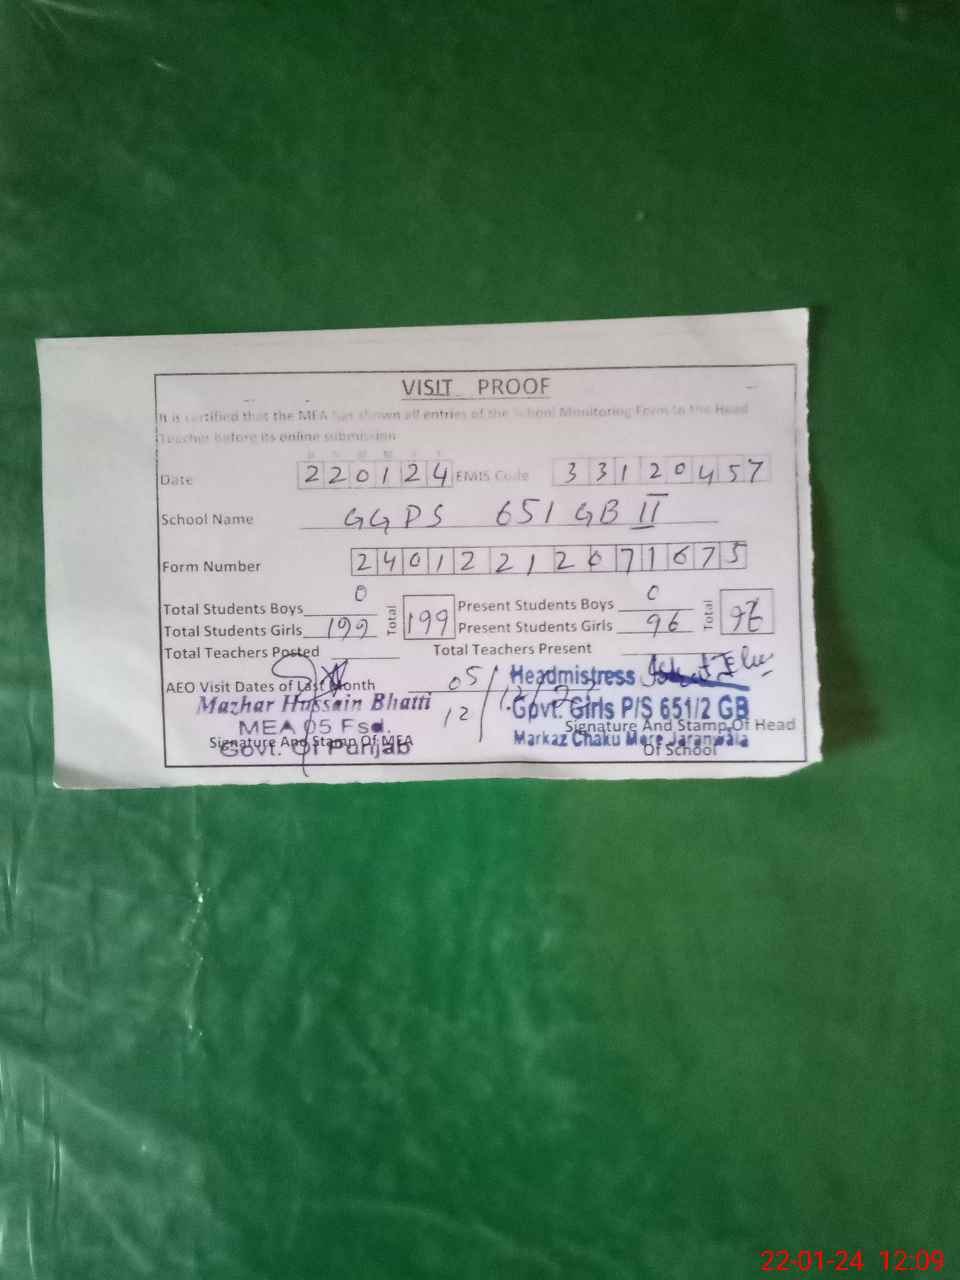 VISIT PROOF
It is certified that the MEA has shown all entries of the School Monitoring Form to the Head
Teacher before its online submission
Date 220124 EMIS Code 33120457
School Name GGPS 651 GB II
Form Number 2401221207 1675
Total Students Boys 0 Total 199 Present Students Boys 0 Total 96
Total Students Girls 199 Present Students Girls 96
Total Teachers Posted Total Teachers Present
AEO Visit Dates of Last Month 05/12/
12/
Mazhar Hussain Bhatti
MEA 05 Fsd.
Govt. Of Punjab
Signature And Stamp Of MEA
Headmistress
Govt. Girls P/S 651/2 GB
Markaz Chaku More Jaranwala
Signature And Stamp Of Head
Of School
22-01-24 12:09